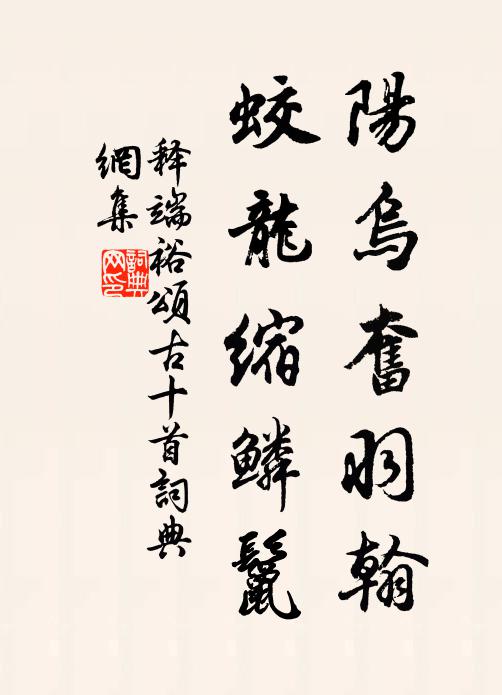 陽烏奮羽翰
蛟龍縮鱗鬣
释端裕頌古十首詞典
網集
詞典
网印